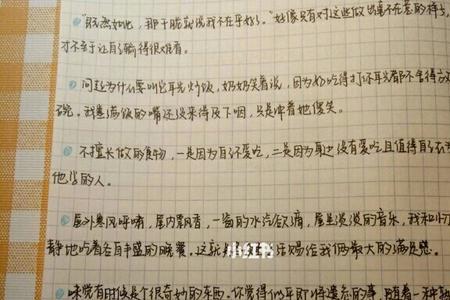 "既然如此，那干脆就说我不在乎好了。"好像只有对这些做出毫不在意的样子，
才不至于让自己输得很难看。
问起为什么要叫它耳光炒饭，奶奶笑着说，因为好吃得打你耳光都不舍得放
碗。我塞满饭的嘴还没来得及下咽，只是冲着她傻笑。
不擅长做的食物，一是因为自己不爱吃，二是因为身边没有爱吃且值得自己
他当的人。
屋外寒风呼啸，屋内飘香，一窗的水汽欲滴，屋里漫漫的音乐，我和小
静地吃着各自丰盛的晚餐。这就 活赐给我俩最大的满足感。
小红书
味觉有时候是个很奇妙的东西。你觉得似乎即将遗忘的事，随着一种熟